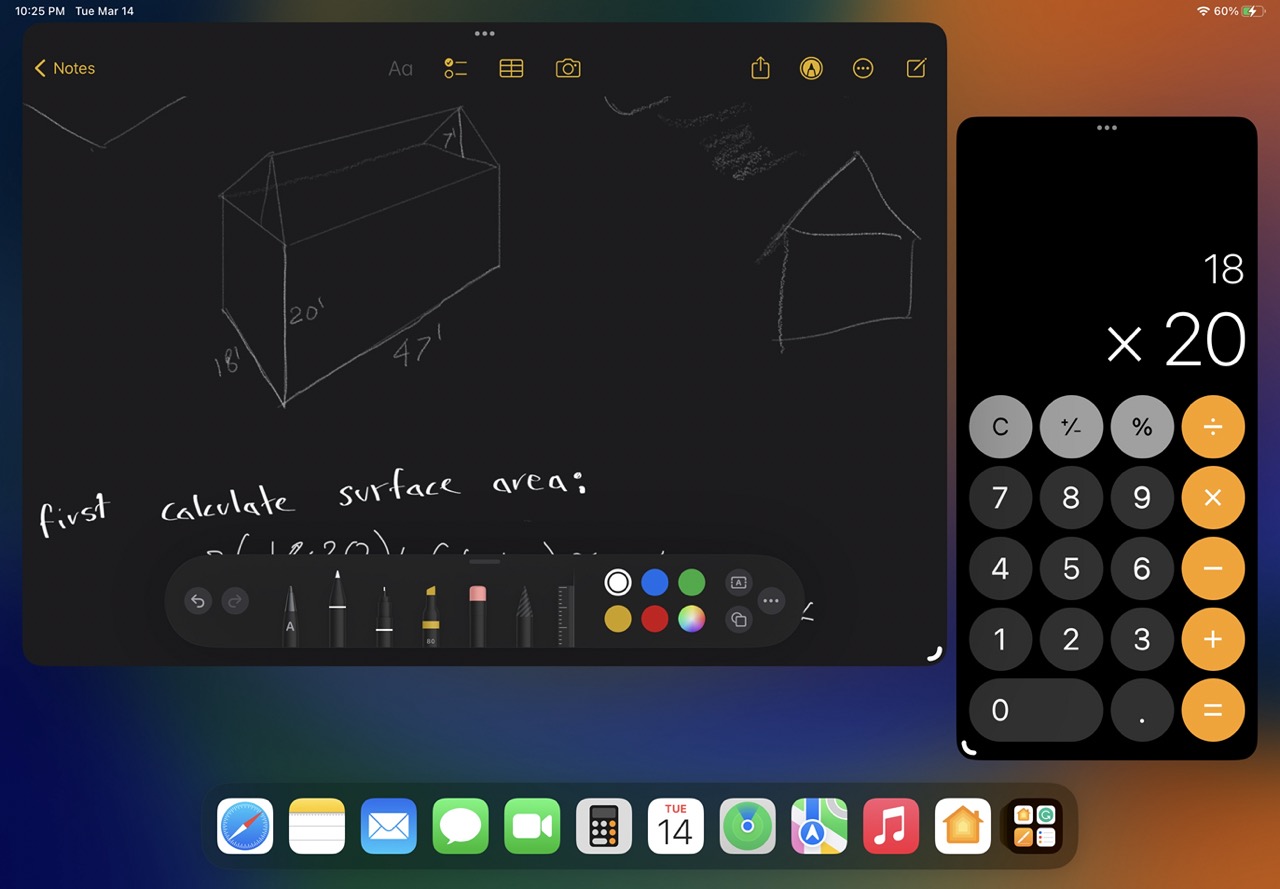 10:25 PM Tue Mar 14
60%
Notes
Aa
7'
20'
18'
47'
first calculate surface area:
A
80
A
18
× 20
C +/- % ÷
7 8 9 ×
4 5 6 −
1 2 3 +
0 . =
TUE
14